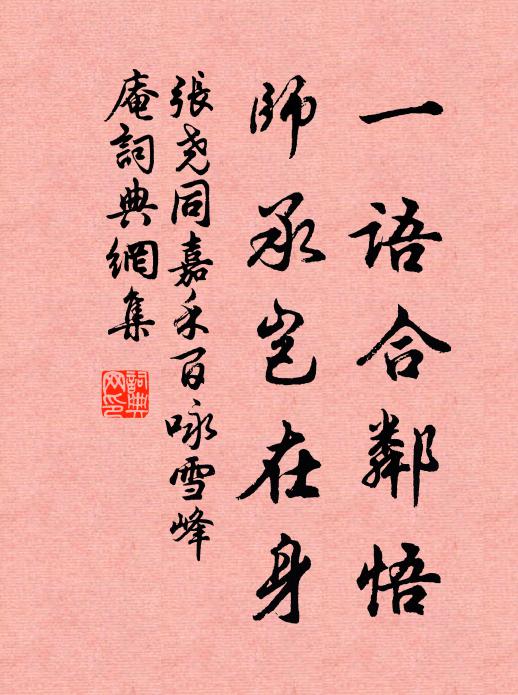 一語合鄰悟
師承豈在身
張堯同嘉禾百咏雪峰
庵詞典網集
詞典
网印